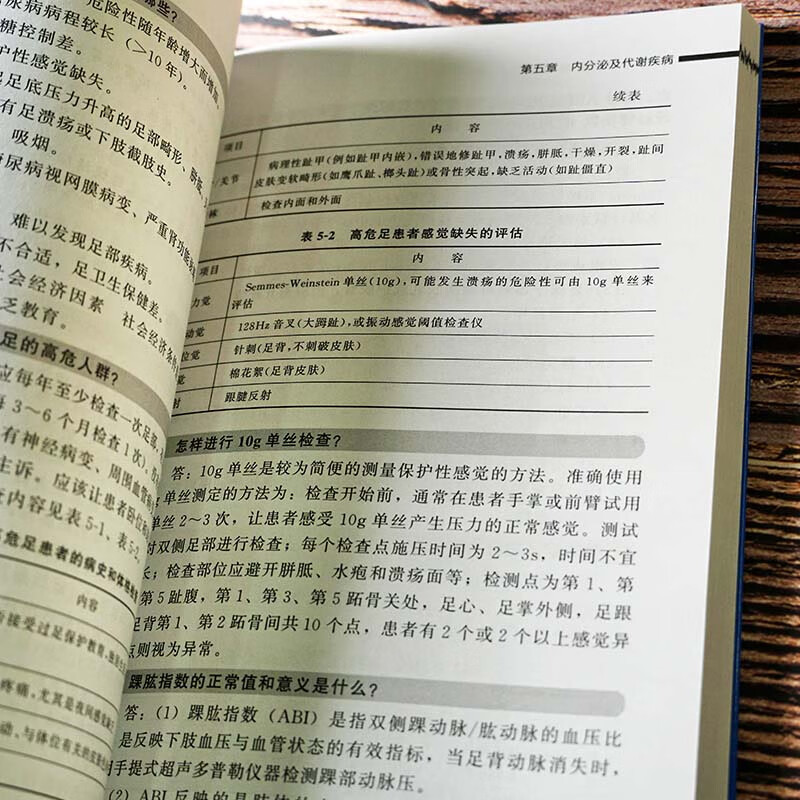 危险性随年龄增大而增加
尿病病程较长（>10年）。
糖控制差。
护性感觉缺失。
足底压力升高的足部畸形、胼胝
有足溃疡或下肢截肢史。
吸烟。
尿病视网膜病变、严重肾功能
难以发现足部疾病。
不合适，足卫生保健差。
社会经济因素 社会经济条件
乏教育。
足的高危人群？
应每年至少检查一次足部
3～6个月检查1次）
有神经病变、周围血管
主诉。应该让患者卧位
内容见表5-1、表5-2
高危足患者的病史和体
内容
接受过足保护教育
疼痛，尤其是夜间
动、与体位有关的
第五章 内分泌及代谢疾病
续表
项目 内容
/关节 病理性趾甲（例如趾甲内嵌），错误地修趾甲，溃疡，胼胝，干燥，开裂，趾间
皮肤变软畸形（如鹰爪趾、榔头趾）或骨性突起，缺乏活动（如趾僵直）
袜 检查内面和外面
表 5-2 高危足患者感觉缺失的评估
项目 内容
力觉 Semmes-Weinstein 单丝（10g），可能发生溃疡的危险性可由 10g 单丝来
评估
动觉 128Hz 音叉（大踇趾），或振动感觉阈值检查仪
位觉 针刺（足背，不刺破皮肤）
觉 棉花絮（足背皮肤）
射 跟腱反射
怎样进行 10g 单丝检查？
答：10g 单丝是较为简便的测量保护性感觉的方法。准确使用
单丝测定的方法为：检查开始前，通常在患者手掌或前臂试用
单丝 2～3 次，让患者感受 10g 单丝产生压力的正常感觉。测试
对双侧足部进行检查；每个检查点施压时间为 2～3s，时间不宜
长；检查部位应避开胼胝、水疱和溃疡面等；检测点为第 1、第
第 5 趾腹，第 1、第 3、第 5 跖骨关处，足心、足掌外侧，足跟
足背第 1、第 2 跖骨间共 10 个点，患者有 2 个或 2 个以上感觉异
点则视为异常。
踝肱指数的正常值和意义是什么？
答：（1）踝肱指数（ABI）是指双侧踝动脉/肱动脉的血压比
是反映下肢血压与血管状态的有效指标，当足背动脉消失时，
用手提式超声多普勒仪器检测踝部动脉压。
（2）ABI 反映的是肢体的